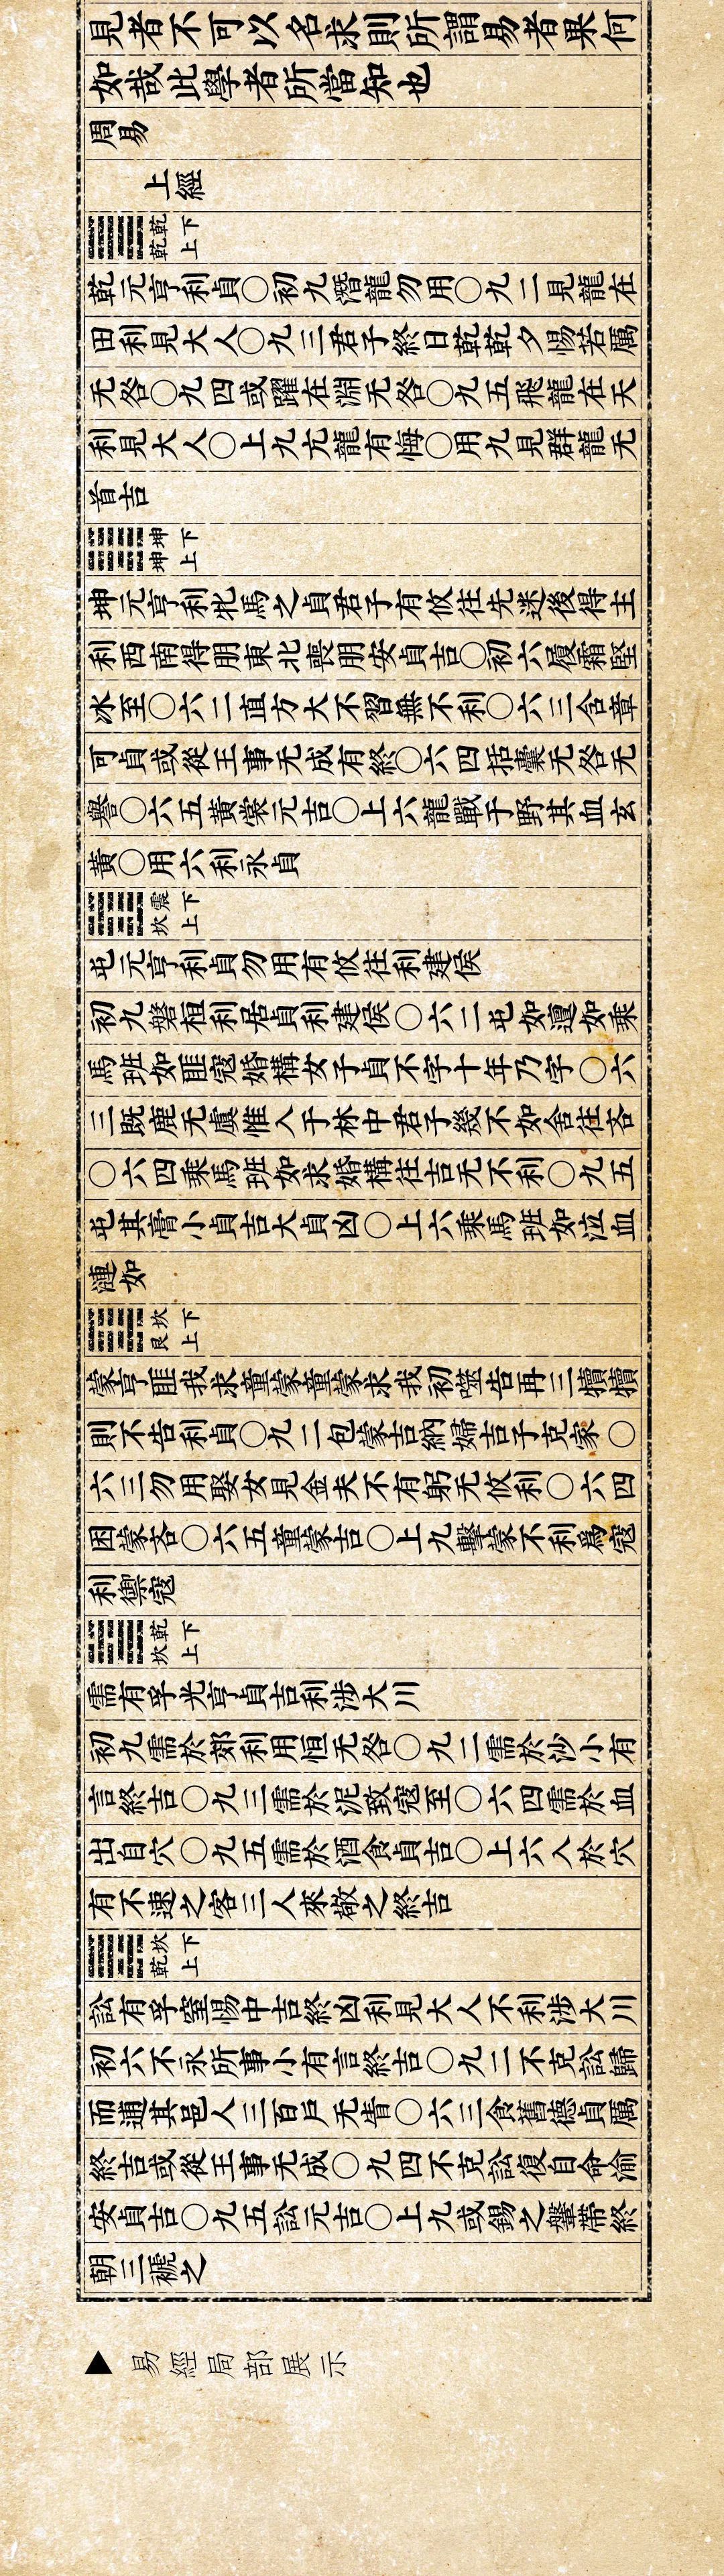 見者不可以名求則所謂易者果何
如哉此學者所當知也
周易
上經
乾下乾上
乾元亨利貞〇初九潛龍勿用〇九二見龍在
田利見大人〇九三君子終日乾乾夕惕若厲
无咎〇九四或躍在淵无咎〇九五飛龍在天
利見大人〇上九亢龍有悔〇用九見群龍无
首吉
坤下坤上
坤元亨利牝馬之貞君子有攸往先迷後得主
利西南得朋東北喪朋安貞吉〇初六履霜堅
冰至〇六二直方大不習無不利〇六三含章
可貞或從王事无成有終〇六四括囊无咎无
譽〇六五黃裳元吉〇上六龍戰于野其血玄
黃〇用六利永貞
震下坎上
屯元亨利貞勿用有攸往利建侯
初九磐桓利居貞利建侯〇六二屯如邅如乘
馬班如匪寇婚構女子貞不字十年乃字〇六
三既鹿无虞惟入于林中君子幾不如舍往吝
〇六四乘馬班如求婚構往吉无不利〇九五
屯其膏小貞吉大貞凶〇上六乘馬班如泣血
漣如
坎下艮上
蒙亨匪我求童蒙童蒙求我初噬告再三犢犢
則不告利貞〇九二包蒙吉納婦吉子克家〇
六三勿用娶女見金夫不有躬无攸利〇六四
困蒙吝〇六五童蒙吉〇上九擊蒙不利爲寇
利禦寇
乾下坎上
需有孚光亨貞吉利涉大川
初九需於郊利用恒无咎〇九二需於沙小有
言終吉〇九三需於泥致寇至〇六四需於血
出自穴〇九五需於酒食貞吉〇上六入於穴
有不速之客三人來敬之終吉
坎下乾上
訟有孚窒惕中吉終凶利見大人不利涉大川
初六不永所事小有言終吉〇九二不克訟歸
而逋其邑人三百戶无眚〇六三食舊德貞厲
終吉或從王事无成〇九四不克訟復自命渝
安貞吉〇九五訟元吉〇上九或錫之鞶帶終
朝三褫之
▲ 易經局部展示